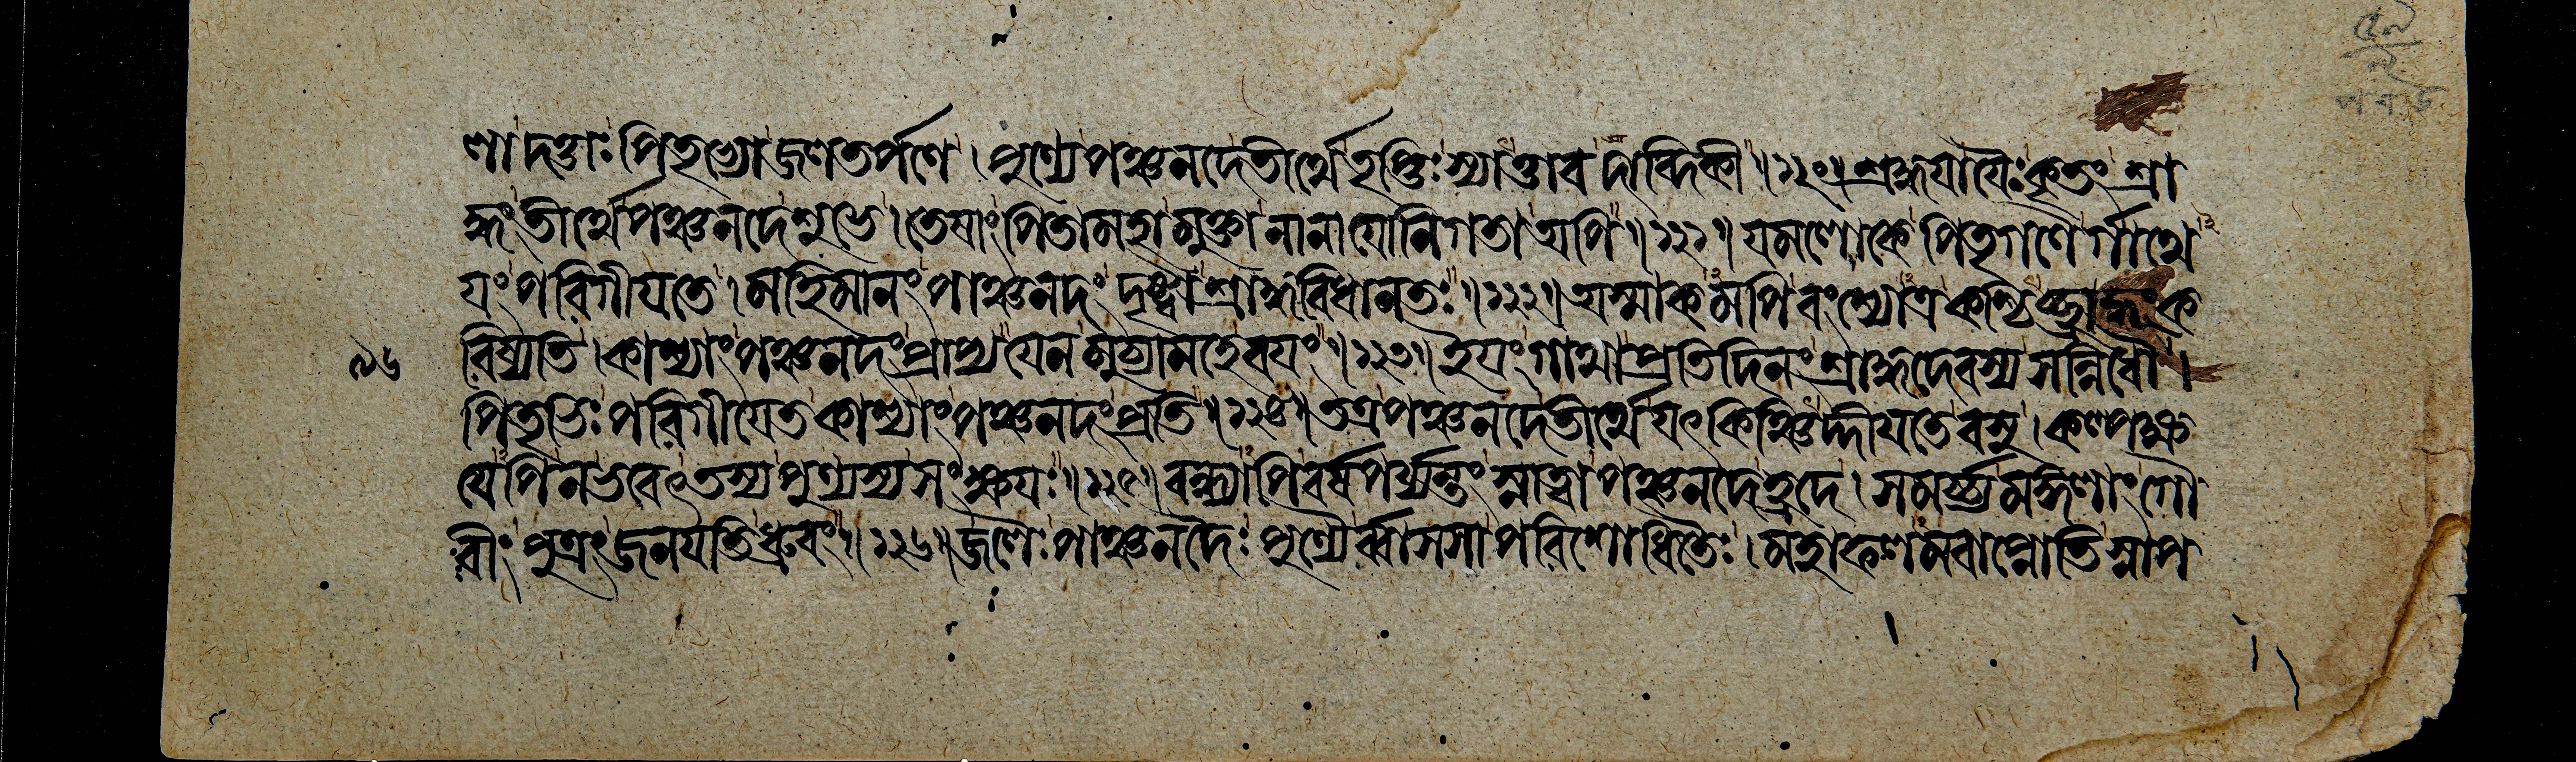 লা দত্তাঃ পিতৃভ্যো জলতর্পণে । পুণ্যে পঞ্চনদে তীর্থে তৃপ্তিঃ স্যাত্তাবদাব্দিকী ॥ ১২০ ॥ শ্রদ্ধয়া যৈঃ কৃতং শ্রা
দ্ধং তীর্থে পঞ্চনদে শুভে । তেষাং পিতামহা মুক্তা নানাযোনিগতা অপি ॥ ১২১ ॥ যমলোকে পিতৃগণৈর্গাথে
য়ং পরিগীয়তে । মহিমানং পাঞ্চনদং দৃষ্ট্বা শ্রাদ্ধবিধানতঃ ॥ ১২২ ॥ অস্মাকমপি বংশ্যোত্র কশ্চিচ্ছ্রাদ্ধং ক
রিষ্যতি । কাশ্যাং পঞ্চনদং প্রাপ্য যেন মুচ্যামহে বয়ং ॥ ১২৩ ॥ ইয়ং গাথা প্রতিদিনং শ্রাদ্ধদেবস্য সন্নিধৌ ।
৯৬
পিতৃভিঃ পরিগীয়েত কাশ্যাং পঞ্চনদং প্রতি ॥ ১২৪ ॥ তত্র পঞ্চনদে তীর্থে যৎকিঞ্চিদ্দীয়তে বসু । কল্পক্ষ
য়েপি ন ভবেৎ তস্য পুণ্যস্য সংক্ষয়ঃ ॥ ১২৫ ॥ বন্ধ্যাপি বর্ষপর্য্যন্তং স্নাত্বা পঞ্চনদে হ্রদে । সমর্চ্চ্য মঙ্গলাং গৌ
রীং পুত্রং জনয়তি ধ্রুবং ॥ ১২৬ ॥ জলৈঃ পাঞ্চনদৈঃ পুণ্যৈর্ব্বাসসা পরিশোধিতৈঃ । মহাফলমবাপ্নোতি স্নাপ